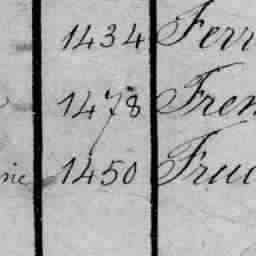 1434 Ferr
1478 Fren
nie 1450 Fru